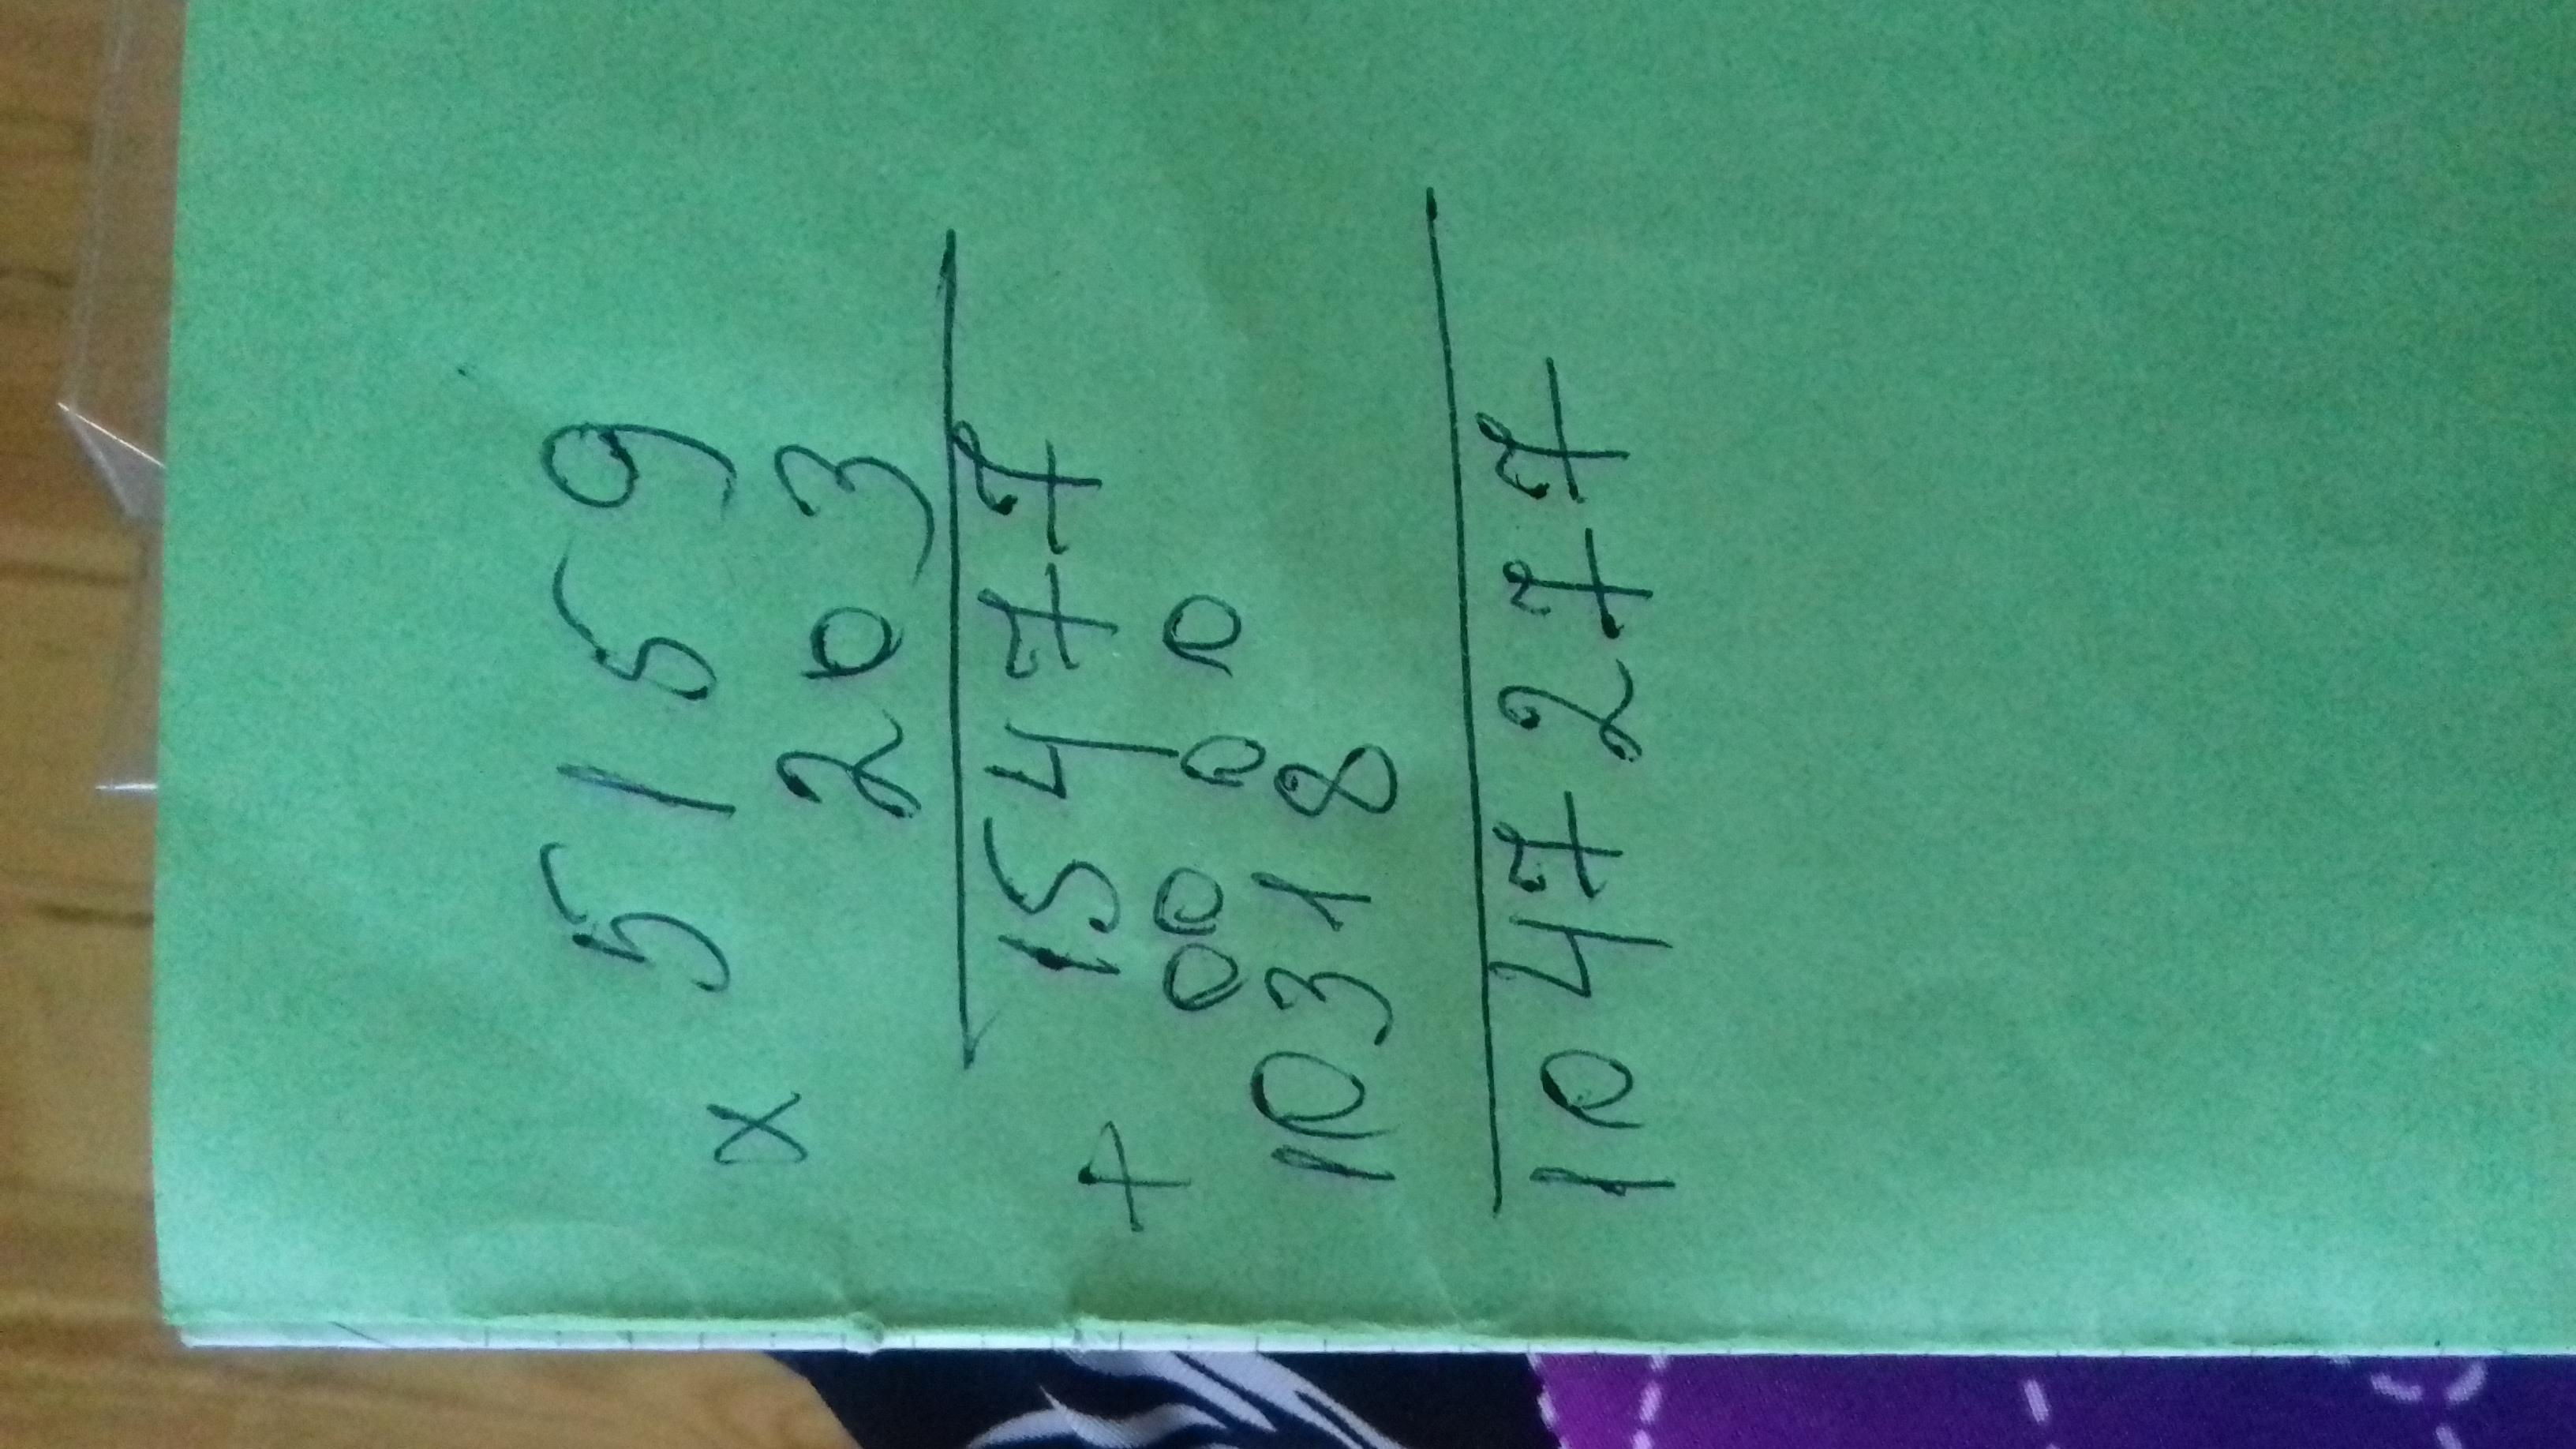 5159
x
203
15477
+
0000
10318
1047277